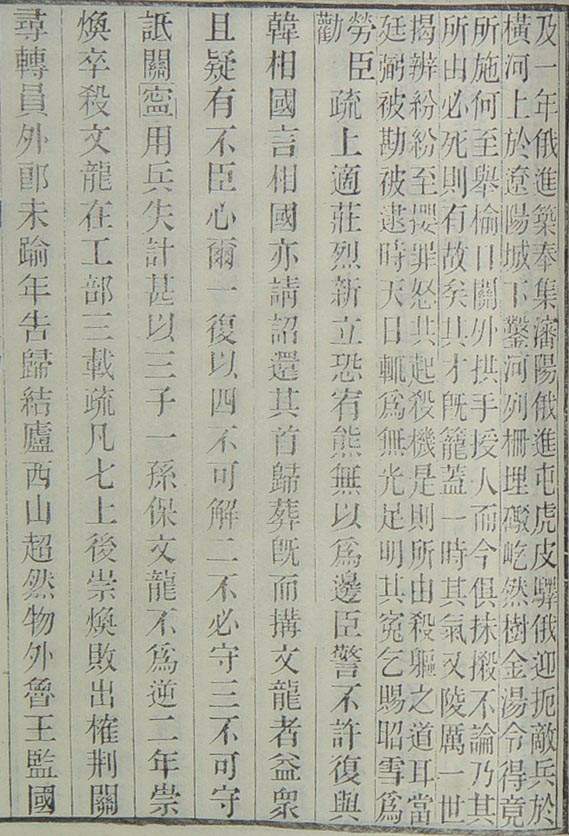 及一年俄進築奉集瀋陽俄進屯虎皮驛俄迎扼敵兵於
橫河上於遼陽城下鑿河列柵埋礟屹然樹金湯令得竟
所施何至舉榆口關外拱手授人而今俱抹摋不論乃其
所由必死則有故矣其才旣籠蓋一時其氣又陵厲一世
揭辨紛紛至攖罪怒共起殺機是則所由殺軀之道耳當
廷弼被勘被逮時天日輒爲無光足明其寃乞賜昭雪爲
勞臣
勸 疏上適莊烈新立恐宥熊無以爲邊臣警不許復與
韓相國言相國亦請詔還其首歸葬旣而搆文龍者益衆
且疑有不臣心爾一復以四不可解二不必守三不可守
詆關寍用兵失計甚以三子一孫保文龍不爲逆二年崇
煥卒殺文龍在工部三載疏凡七上後崇煥敗出榷荆關
尋轉員外郎未踰年告歸結廬西山超然物外魯王監國